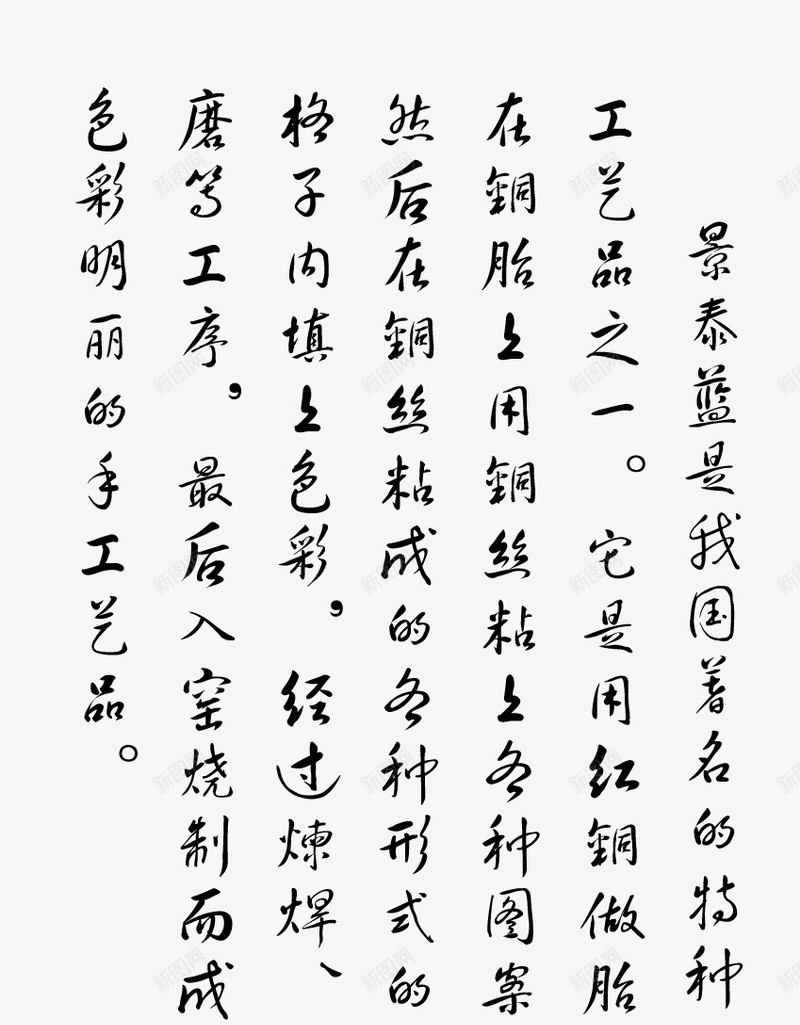 景泰蓝是我国著名的特种
工艺品之一。它是用红銅做胎
在銅胎上用銅丝粘上各种图案
然后在銅丝粘成的各种形式的
格子内填上色彩，经过煉焊、
磨等工序，最后入窑烧制而成
色彩明丽的手工艺品。